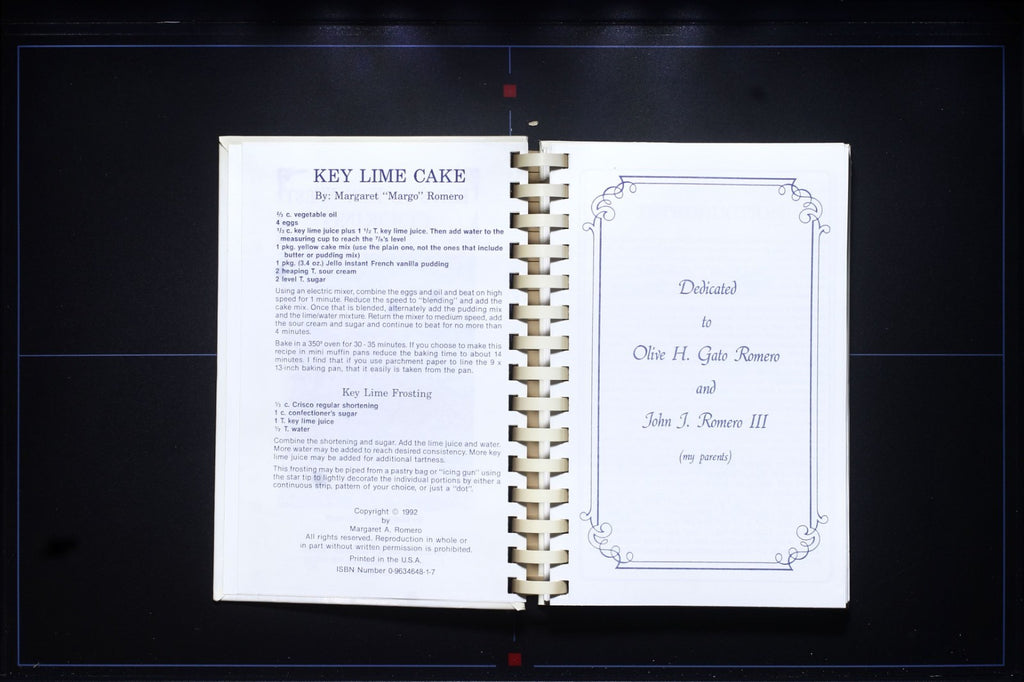 KEY LIME CAKE
By: Margaret “Margo” Romero
⅔ c. vegetable oil
4 eggs
⅓ c. key lime juice plus 1 ½ T. key lime juice. Then add water to the
measuring cup to reach the ⅞'s level
1 pkg. yellow cake mix (use the plain one, not the ones that include
butter or pudding mix)
1 pkg. (3.4 oz.) Jello Instant French vanilla pudding
2 heaping T. sour cream
2 level T. sugar
Using an electric mixer, combine the eggs and oil and beat on high
speed for 1 minute. Reduce the speed to “blending” and add the
cake mix. Once that is blended, alternately add the pudding mix
and the lime/water mixture. Return the mixer to medium speed, add
the sour cream and sugar and continue to beat for no more than
4 minutes.
Bake in a 350° oven for 30 - 35 minutes. If you choose to make this
recipe in mini muffin pans reduce the baking time to about 14
minutes. I find that if you use parchment paper to line the 9 x
13 inch baking pan, that it easily is taken from the pan.
Key Lime Frosting
c. Crisco regular shortening
1 c. confectioner's sugar
1 T. key lime juice
½ T. water
Combine the shortening and sugar. Add the lime juice and water.
More water may be added to reach desired consistency. More key
lime juice may be added for additional tartness.
This frosting may be piped from a pastry bag or “icing gun” using
the star tip to lightly decorate the individual portions by either a
continuous strip, pattern of your choice, or just a “dot”.
Copyright © 1992
by
Margaret A. Romero
All rights reserved. Reproduction in whole or
in part without written permission is prohibited.
Printed in the U.S.A.
ISBN Number 0-9634648-1-7
Dedicated
to
Olive H. Gato Romero
and
John J. Romero III
(my parents)